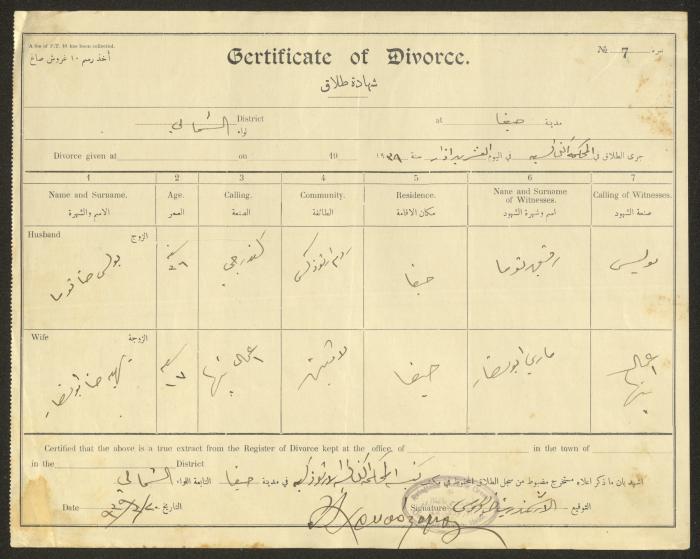 A fee of P.T. 10 has been collected.
أخذ رسم ١٠ غروش صاغ
Certificate of Divorce.
№ 7 نمرة
شهادة طلاق
لواء الشمالي District at حيفا مدينة
Divorce given at on 19 جرى الطلاق في المحكمة الكنائسية في اليوم العشرين اذار سنة ١٩٣٩
1 2 3 4 5 6 7
Name and Surname. Age. Calling. Community. Residence. Name and Surname of Witnesses. Calling of Witnesses.
الاسم والشهرة العمر الصنعة الطائفة مكان الاقامة اسم وشهرة الشهود صنعة الشهود
Husband الزوج
بولس حنا توما سنة ٢٦ كندرجي روم ارثوذكس حيفا رفيق توما بوليس
Wife الزوجة
حنا ابو نصار سنة ١٧ اعمال بيتها لاتينية حيفا ماري ابو نصار اعمال بيتها
Certified that the above is a true extract from the Register of Divorce kept at the office, of in the town of
in the District اشهد بان ما ذكر اعلاه مستخرج مضبوط من سجل الطلاق المحفوظ في مكتب المحكمة الكنائسية الارثوذكسية في مدينة حيفا التابعة اللواء الشمالي
Date التاريخ Signature التوقيع